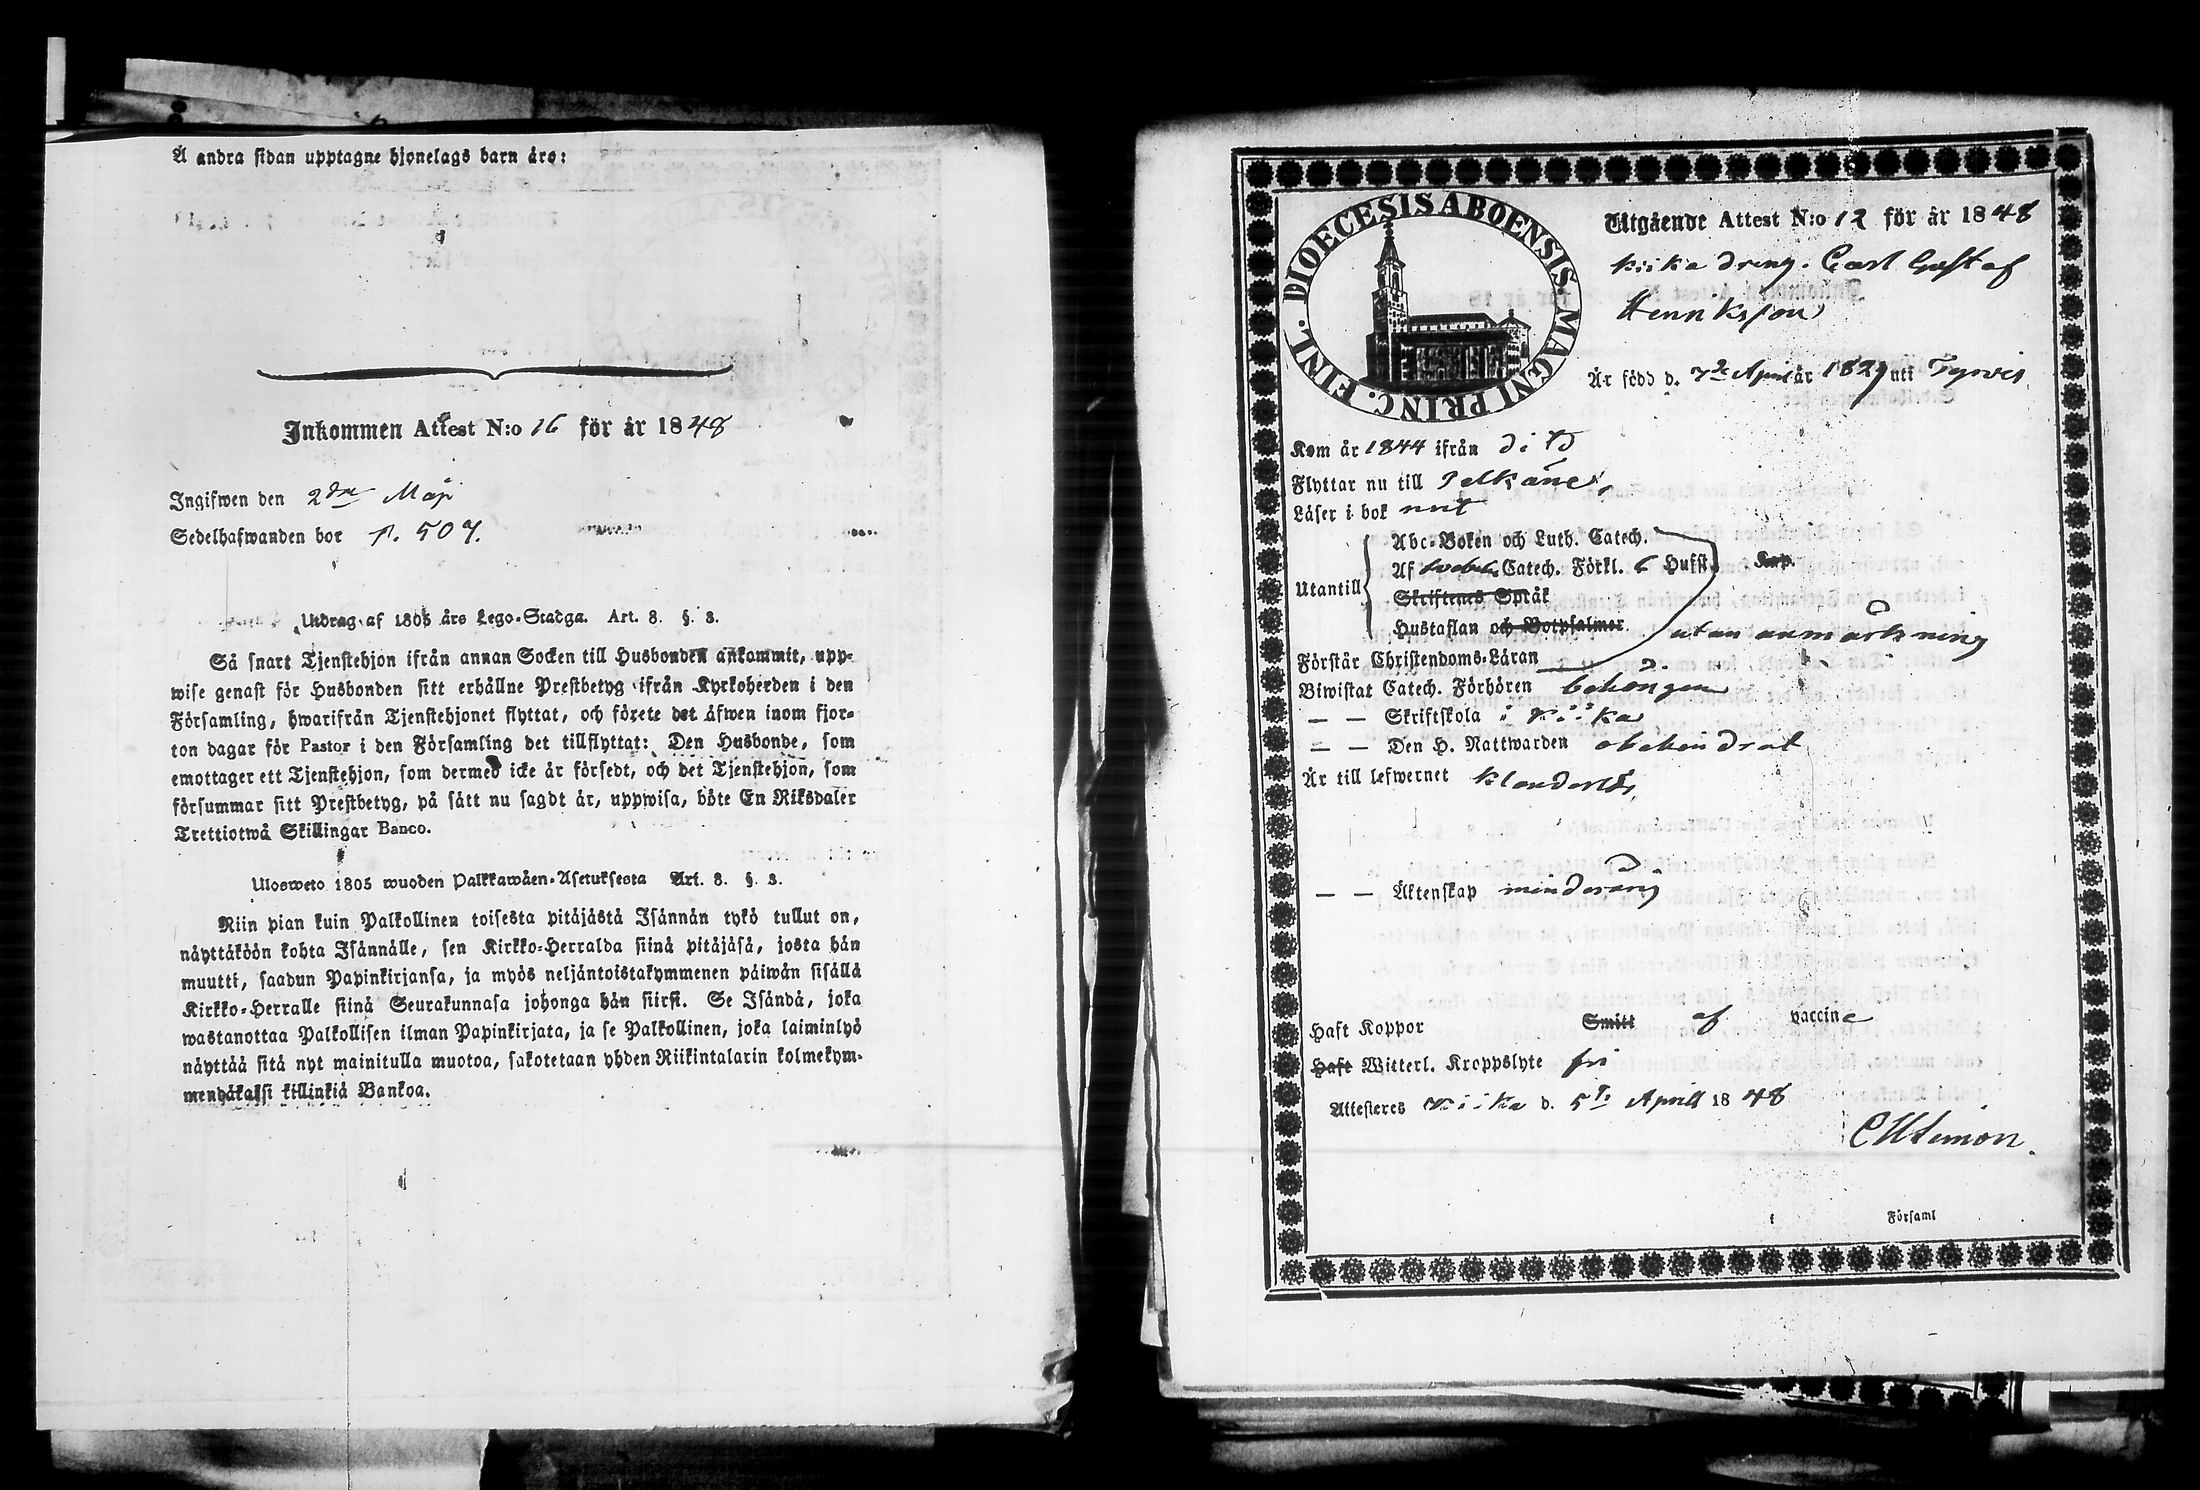 Å andra sidan upptagne hjonelags barn äro:
Inkommen Attest N:o 16 för år 1848
Ingifwen den 2dre Maji
Sedelhafwanden bor p. 507.
Utdrag af 1805 års Lego-Stadga. Art. 8. §. 3.
Så snart Tjenstehjon ifrån annan Socken till Husbonden ankommit, upp-
wise genast för Husbonden sitt erhållne Prestbetyg ifrån Kyrkoherden i den
Församling, hwarifrån Tjenstehjonet flyttat, och förete det äfwen inom fjor-
ton dagar för Pastor i den Församling det tillflyttat: Den Husbonde, som
emottager ett Tjenstehjon, som dermed icke är försedt, och det Tjenstehjon, som
försummar sitt Prestbetyg, på sätt nu sagdt är, uppwisa, böte En Riksdaler
Trettiotwå Skillingar Banco.
Ulosweto 1805 wuoden Palkkawäen-Asetuksesta Art. 8. §. 3.
Niin pian kuin Palkollinen toisesta pitäjästä Isännän tykö tullut on,
näyttäköön kohta Isännälle, sen Kirkko-Herralda siinä pitäjäsä, josta hän
muutti, saadun Papinkirjansa, ja myös neljäntoistakymmenen päiwän sisällä
Kirkko-Herralle siinä Seurakunnasa johonga hän siirsi. Se Isändä, joka
wastanottaa Palkollisen ilman Papinkirjata, ja se Palkollinen, joka laiminlyö
näyttää sitä nyt mainitulla muotoa, sakotetaan yhden Riikintalarin kolmekym-
mendäkaksi killinkiä Bankoa.
DIOECESIS ABOENSIS MAGNI PRINC. FINL.
Utgående Attest N:o 12 för år 1848
Kiika dreng. Carl Gustaf
Henriksson
Är född d. 7de April år 1829 uti Tyrvis
Kom år 1844 ifrån dito
Flyttar nu till Pelkäne,
Läser i bok nöjt
Abc-Boken och Luth. Catech.
Utantill Af Catech. Förkl. 6 Hufst. Kap.
Skriftenes Språk
Hustaflan och Botpsalmer
utan anmärkning
Förstår Christendoms-Läran
Biwistat Catech. Förhören behörigen
— — Skriftskola i Kiika
— — Den H. Nattwarden obehindrat
Är till lefwernet klanderlös,
— — Äktenskap minderårig
Haft Koppor Smitt af vaccine
Haft Witterl. Kroppslyte fri
Attesteres Kiika d. 5te Aprill 1848
i Församl